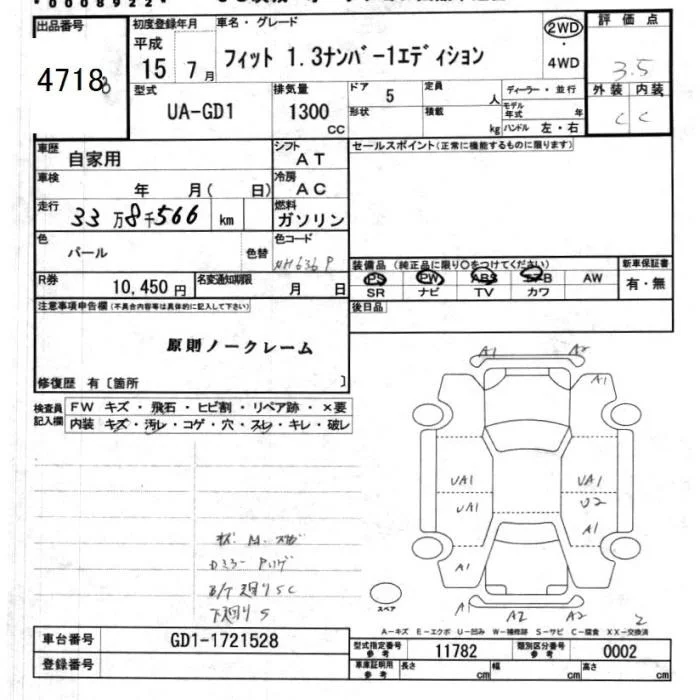 *0008922*
出品番号
4718
初度登録年月
平成
15 7月
車名・グレード
フィット 1.3ナンバー1エディション
2WD
4WD
評価点
3.5
外装 内装
C C
型式
UA-GD1
排気量
1300
CC
ドア 5
形状
定員 人
積載 kg
ディーラー・並行
モデル年式 年
ハンドル 左・右
車歴
自家用
シフト
AT
セールスポイント(正常に機能するものに限ります)
車検
年 月( 日)
冷房
AC
走行
33万8千566 km
燃料
ガソリン
色
パール
色替
色コード
NH636P
装備品(純正品に限り○をつけてください)
PS PW ABS エアB AW
SR ナビ TV カワ
新車保証書
有・無
R券
10,450円
名変通知期限
月 日
後日品
注意事項申告欄(不具合内容等は具体的に記入して下さい)
原則ノークレーム
修復歴 有〔箇所 〕
検査員記入欄
FW キズ・飛石・ヒビ割・リペア跡・×要
内装 キズ・汚レ・コゲ・穴・スレ・キレ・破レ
A1 A2
A1
UA1 UA1
UA1 U2
A1
A1
A1 A2 A2
スペア
下廻りS
A-キズ E-エクボ U-凹み W-補修跡 S-サビ C-腐食 XX-交換済
車台番号
GD1-1721528
登録番号
型式指定番号
参考
11782
類別区分番号
参考
0002
車庫証明用
参考
長さ cm
幅 cm
高さ cm